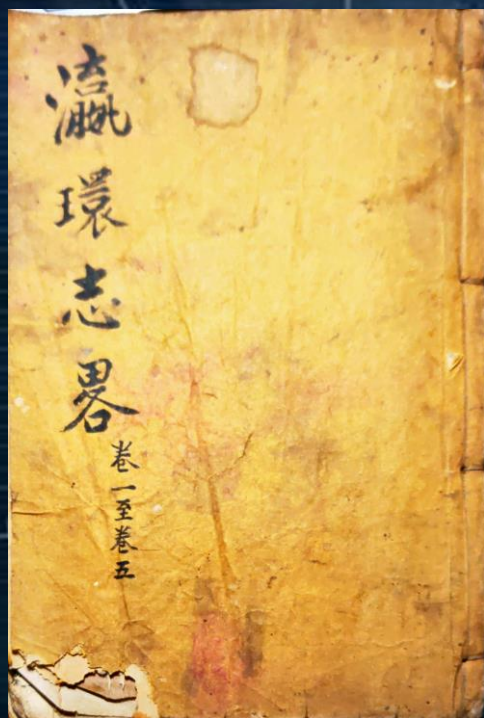 瀛環志畧
卷一至卷五